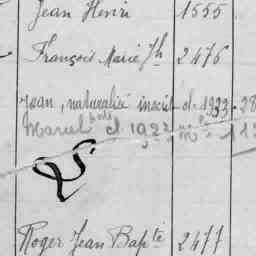 Jean Henri 1555.
François Marie Jh 2476
Jean, naturalisé inscrit cl. 1923. 28
Marcel cl 1922 n° 112
Roger Jean Bapte 2477